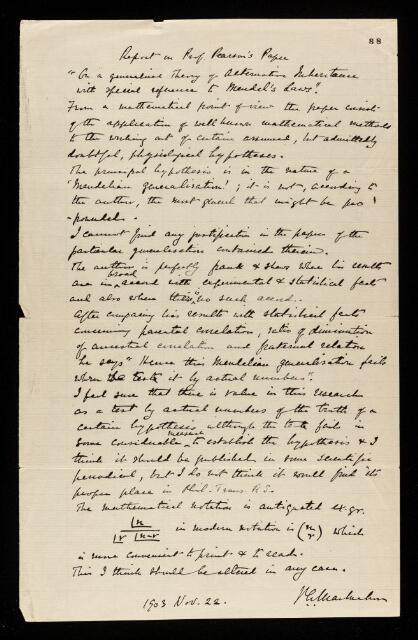 88
Report on Prof. Pearson's Paper
"On a generalised Theory of alternative Inheritance
with special reference to Mendel's Laws".
From a mathematical point of view the paper consists
of the application of well known mathematical methods
to the working out of certain assumed, but admittedly
doubtful, physiological hypotheses.
The principal hypothesis is in the nature of a
'Mendelian generalisation'; it is not, according to
the author, the most general that might be pro
-pounded.
I cannot find any justification in the paper of the
particular generalisation contained therein.
The author is perfectly frank & shows when his results
are in broad accord with experimental & statistical facts
and also when there is no such accord.
After comparing his results with statistical facts
concerning parental correlation, ratio of diminution
of ancestral correlation and fraternal relation
he says "Hence this Mendelian generalisation fails
when we test it by actual numbers".
I feel sure that there is value in this research
as a test by actual numbers of the truth of a
certain hypothesis, although the tests fails in
some considerable measure to establish the hypothesis & I
think it should be published in some scientific
periodical, but I do not think it would find its
proper place in Phil. Trans. R.S.
The mathematical notation is antiquated ex.gr.
|n / |r |n-r in modern notation is (n r) which
is more convenient to print & to read.
This I think should be altered in any case.
1903 Nov. 22. P.A. MacMahon